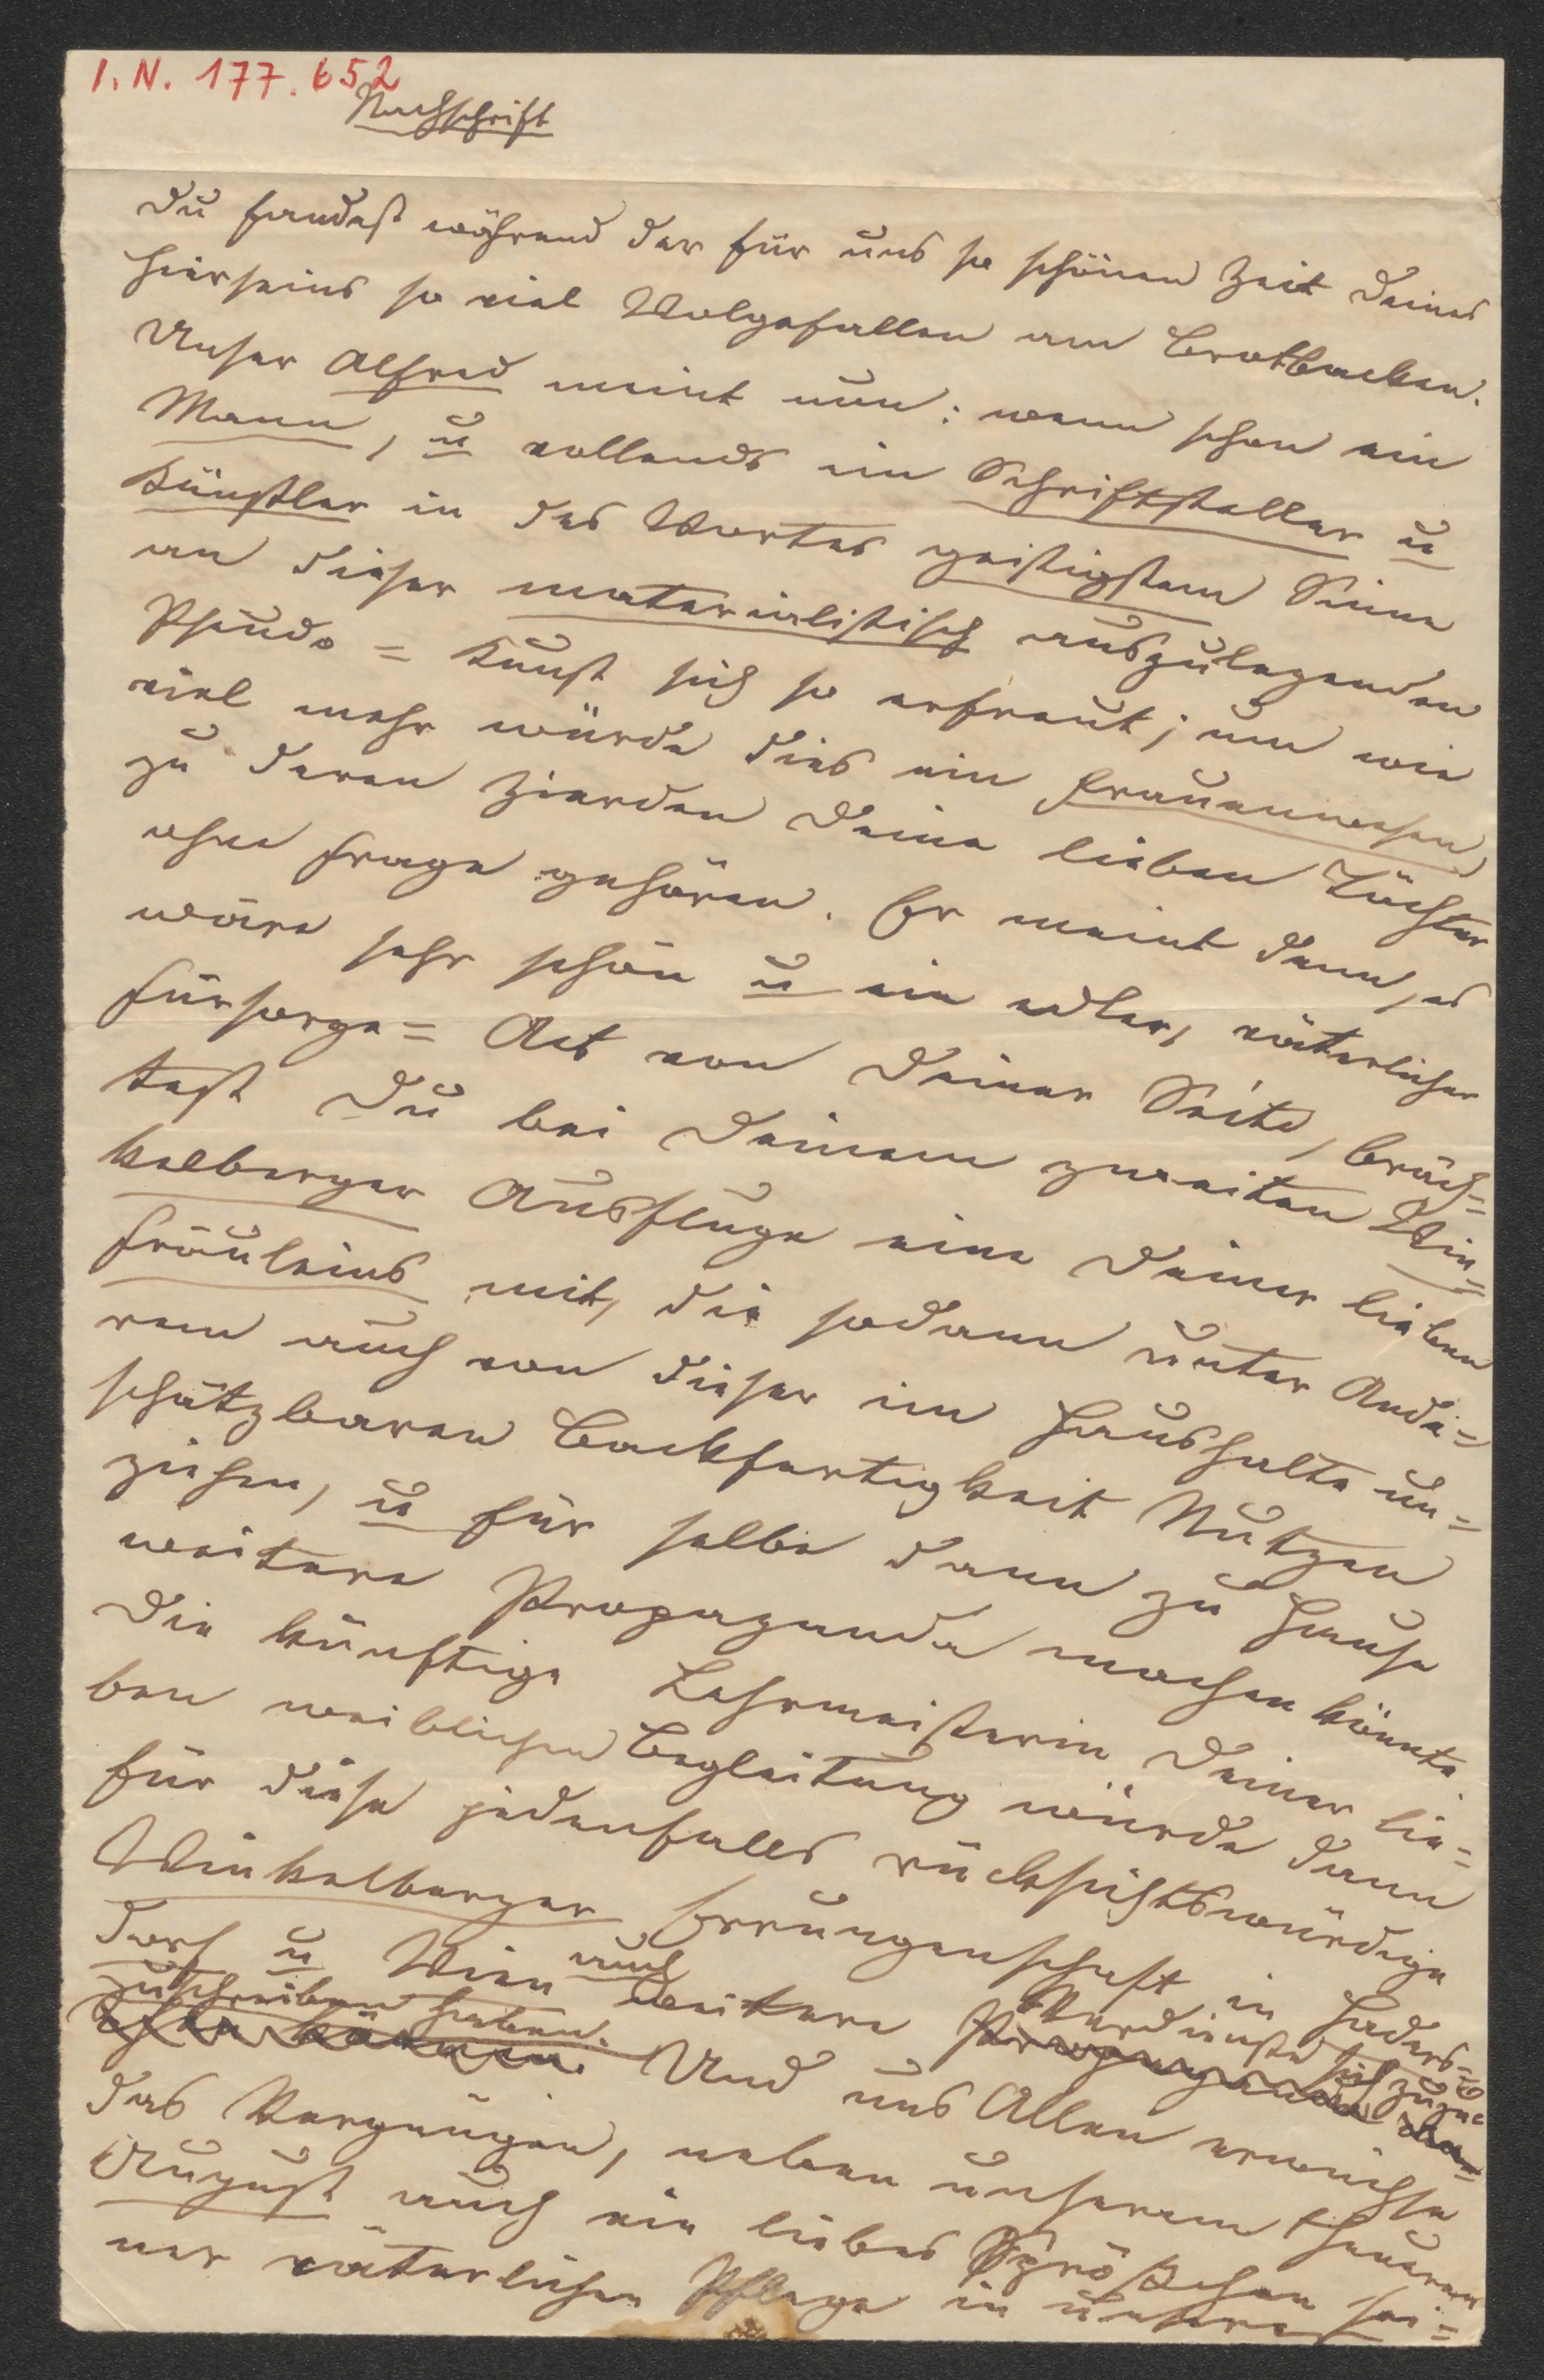 I. N. 177.652
Nachschrift
Du fandest während der für uns so schönen Zeit Deines
Hierseins so viel Wolgefallen am Brotbacken.
Unser Alfred meint nun: wenn schon ein
Mann, u vollends ein Schriftsteller u
Künstler in des Wortes geistigstem Sinne
an dieser materialistisch auszulegenden
Pseudo = Kunst sich so erfreut; um wie
viel mehr würde dies ein Frauenwesen,
zu deren Zierden Deine lieben Töchter
ohne Frage gehören. Er meint denn, es
wäre sehr schön u ein edler, väterlicher
Fürsorge = Act von Deiner Seite, bräch=
test Du bei Deinem zweiten Win=
kelberger Ausfluge eine Deiner lieben
Fräuleins mit, die sodann unter Ande=
rem auch von dieser im Haushalte un=
schätzbaren Backfertigkeit Nutzen
ziehen, u für selbe dann zu Hause
weitere Propaganda machen könnte.
Die künftige Lehrmeisterin Deiner lie=
ben weiblichen Begleitung würde dann
für diese jedenfalls rücksichtswürdige
Winkelberger Errungenschaft in Haders=
dorf u Wien auch weitere Verdienste sich zuzu=
zuschreiben haben. Und uns Allen erwüchse
das Vergnügen, neben unserem theueren
August auch ein liebes Sprößchen sei=
ner väterlichen Pflege in unserer